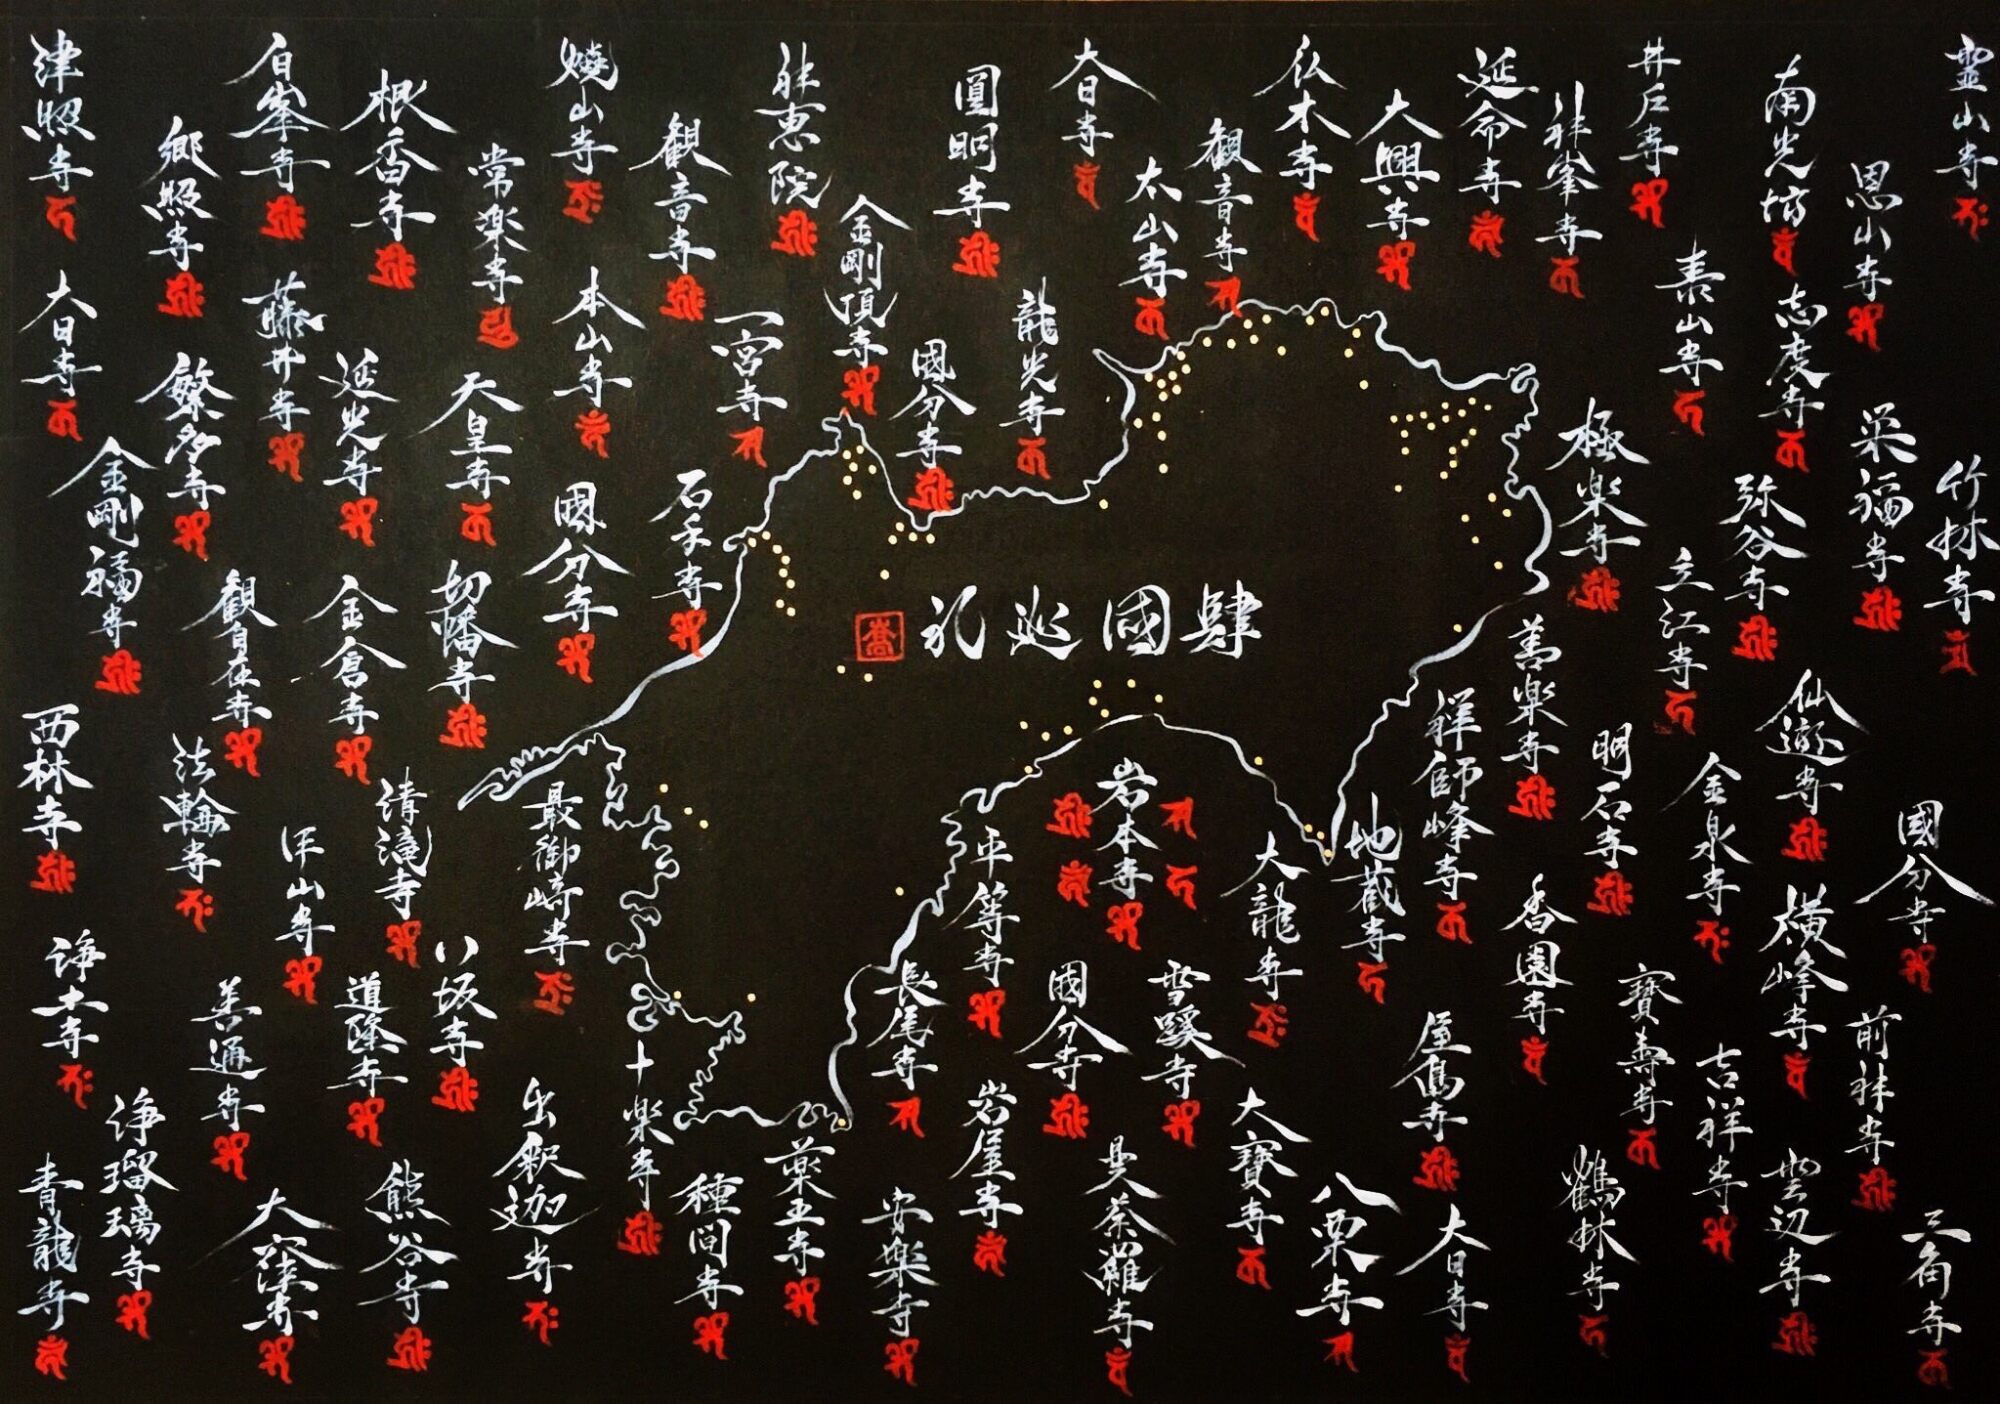 肆國巡礼
靈山寺
竹林寺
國分寺
三角寺
恩山寺
栄福寺
前神寺
南光坊
志度寺
弥谷寺
仙遊寺
横峰寺
雲辺寺
井戸寺
泰山寺
立江寺
金泉寺
吉祥寺
神峯寺
極楽寺
明石寺
寶壽寺
鶴林寺
延命寺
善楽寺
香園寺
大興寺
禅師峰寺
屋島寺
大日寺
仏木寺
地蔵寺
八栗寺
観音寺
太山寺
大龍寺
大寶寺
大日寺
雪蹊寺
岩本寺
曼荼羅寺
圓明寺
龍光寺
國分寺
平等寺
岩屋寺
國分寺
長尾寺
安楽寺
金剛頂寺
神恵院
薬王寺
一宮寺
種間寺
観音寺
石手寺
十楽寺
焼山寺
本山寺
國分寺
最御崎寺
出釈迦寺
常楽寺
天皇寺
切幡寺
八坂寺
根香寺
延光寺
金倉寺
清滝寺
道隆寺
熊谷寺
白峯寺
藤井寺
観自在寺
禅山寺
大窪寺
郷照寺
繁多寺
法輪寺
善通寺
津照寺
大日寺
金剛福寺
西林寺
浄土寺
浄瑠璃寺
青龍寺